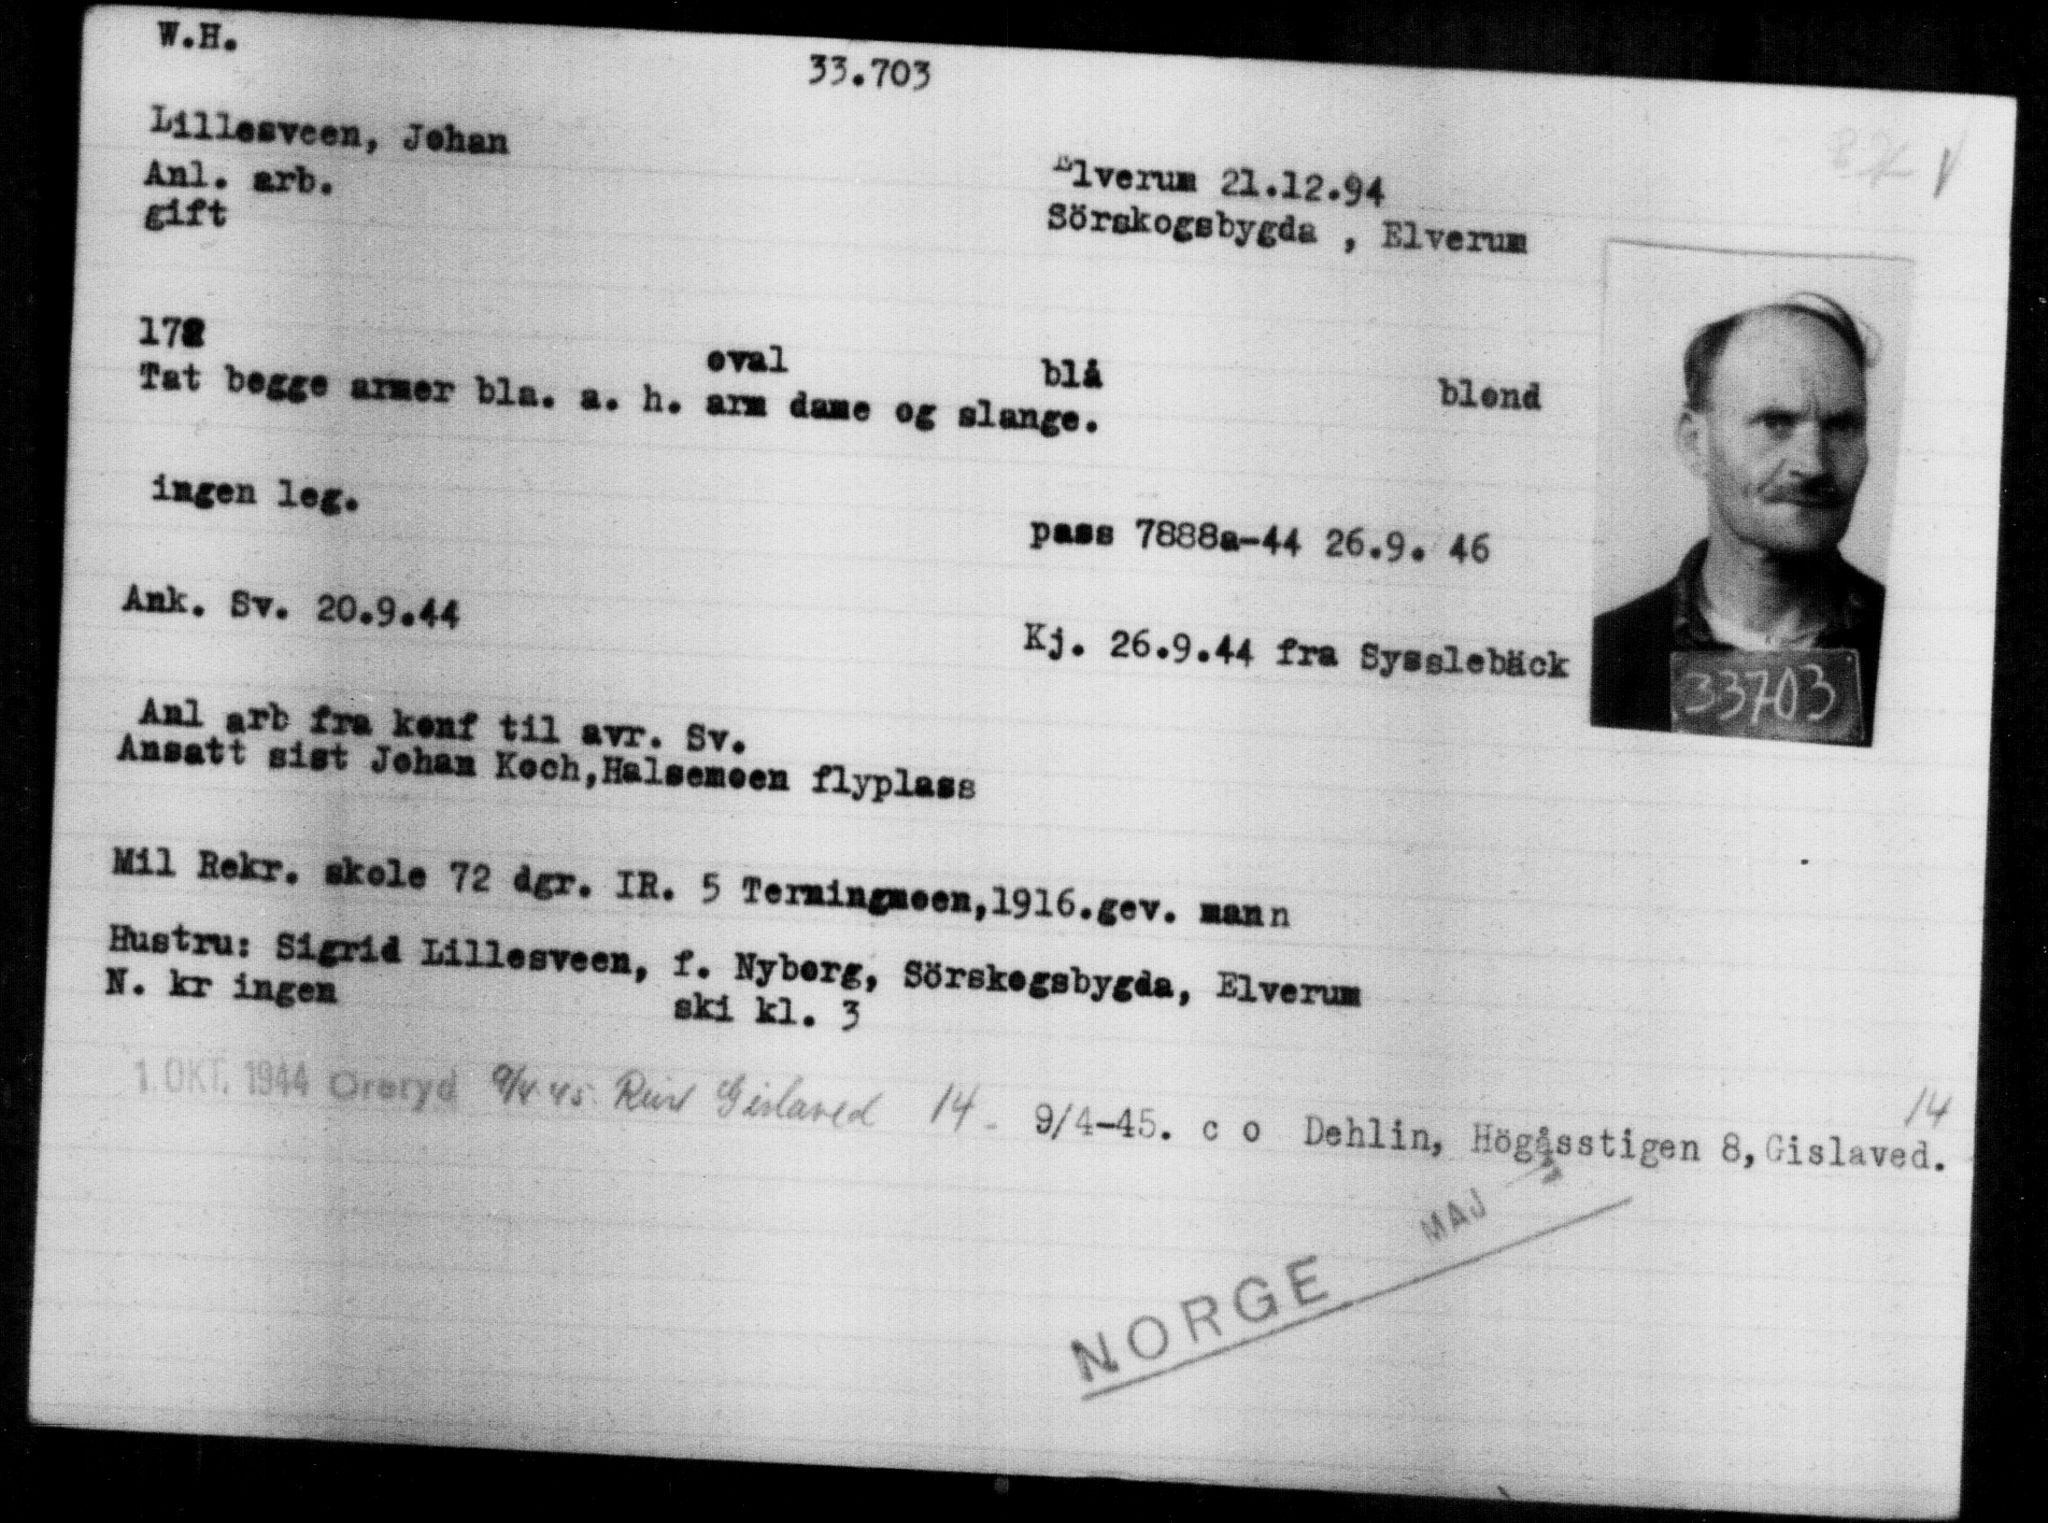 W.H.
33.703
Lillesveen, Johan
Anl. arb.
Elverum 21.12.94
gift
Sörskogsbygda , Elverum
172
oval
blå
blond
Tat begge armer bla. a. h. arm dame og slange.
ingen leg.
pass 7888a-44 26.9. 46
Ank. Sv. 20.9.44
Kj. 26.9.44 fra Sysslebäck
33703
Anl arb fra konf til avr. Sv.
Ansatt sist Johan Koch,Halsemoen flyplass
Mil Rekr. skole 72 dgr. IR. 5 Terningmoen,1916.gev. mann
Hustru: Sigrid Lillesveen, f. Nyborg, Sörskogsbygda, Elverum
N. kr ingen
ski kl. 3
1. OKT. 1944 Öreryd 9/4 45 Gislaved 14 - 9/4-45. c o Dehlin, Högåsstigen 8,Gislaved.
14
MAJ
NORGE